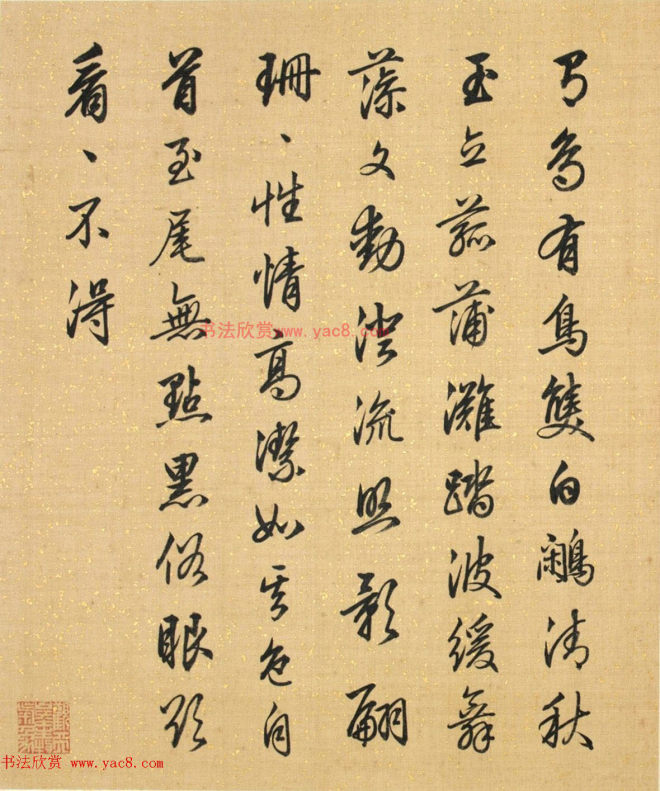 有鳥有鳥雙白鷴清秋
玉立菰蒲灘踏波緩舞
藻文動澄流照影翩
珊、性情高潔如其色自
首至尾無點黑俗眼欲
看、不得
书法欣赏 www.yac8.com
书法欣赏 www.yac8.com